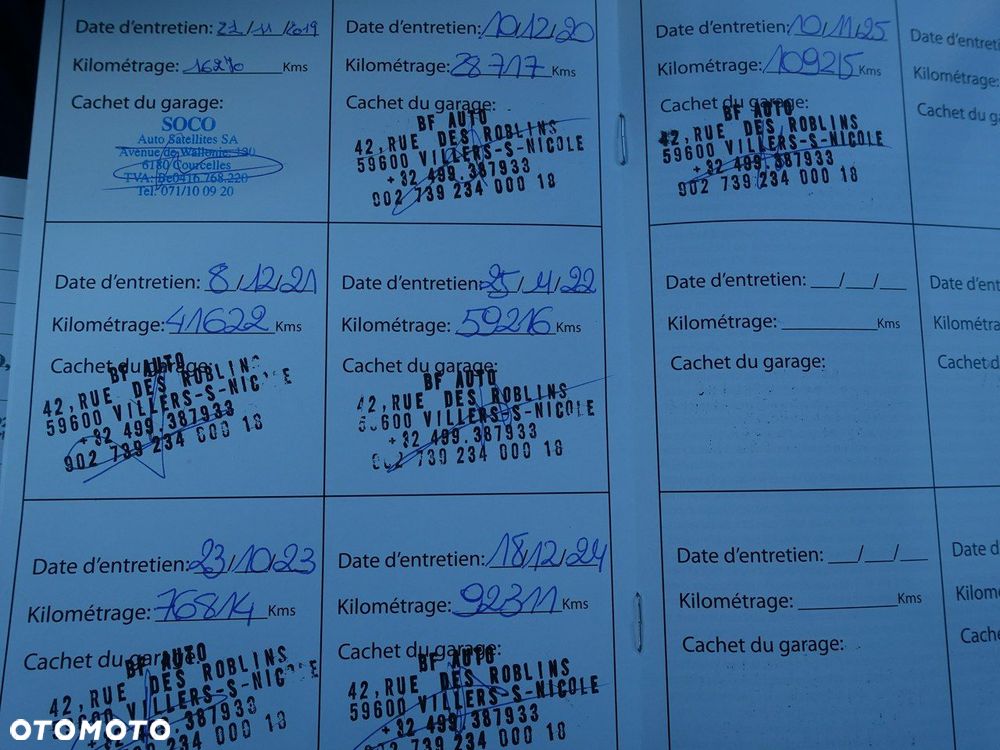 Date d'entretien: 21/11/2019
Kilométrage: 16270 Kms
Cachet du garage:
SOCO
Auto Satellites SA
Avenue de Wallonie 190
6180 Courcelles
TVA: Be0416.768.220
Tel: 071/10 09 20
Date d'entretien: 10/12/20
Kilométrage: 28717 Kms
Cachet du garage:
BF AUTO
42,RUE DES ROBLINS
59600 VILLERS-S-NICOLE
+32 499.387933
902 739 234 000 18
Date d'entretien: 10/11/25
Kilométrage: 109215 Kms
Cachet du garage:
BF AUTO
42,RUE DES ROBLINS
59600 VILLERS-S-NICOLE
+32 499.387933
902 739 234 000 18
Date d'entreti
Kilométrage:
Cachet du ga
Date d'entretien: 8/12/21
Kilométrage: 41622 Kms
Cachet du garage:
BF AUTO
42,RUE DES ROBLIN
59600 VILLERS-S-NIC E
+32 499.387933
902 739 234 000 18
Date d'entretien: 25/11/22
Kilométrage: 59216 Kms
Cachet du garage:
BF AUTO
42,RUE DES ROBLINS
59600 VILLERS-S-NICOLE
+32 499.387933
902 739 234 000 18
Date d'entretien: __/__/__
Kilométrage: ________ Kms
Cachet du garage:
Date d'ent
Kilométra
Cachet d
Date d'entretien: 23/10/23
Kilométrage: 76814 Kms
Cachet du garage:
BF AUTO
42,RUE DES ROBLINS
VILLERS-S-NIC E
.387933
234 000 18
Date d'entretien: 18/12/24
Kilométrage: 92311 Kms
Cachet du garage:
BF AUTO
42,RUE DES ROBLINS
59600 VILLERS-S-NICOLE
+32 499.387933
234 000 18
Date d'entretien: __/__/__
Kilométrage: ________ Kms
Cachet du garage:
Date d
Kilom
Cache
OTOMOTO